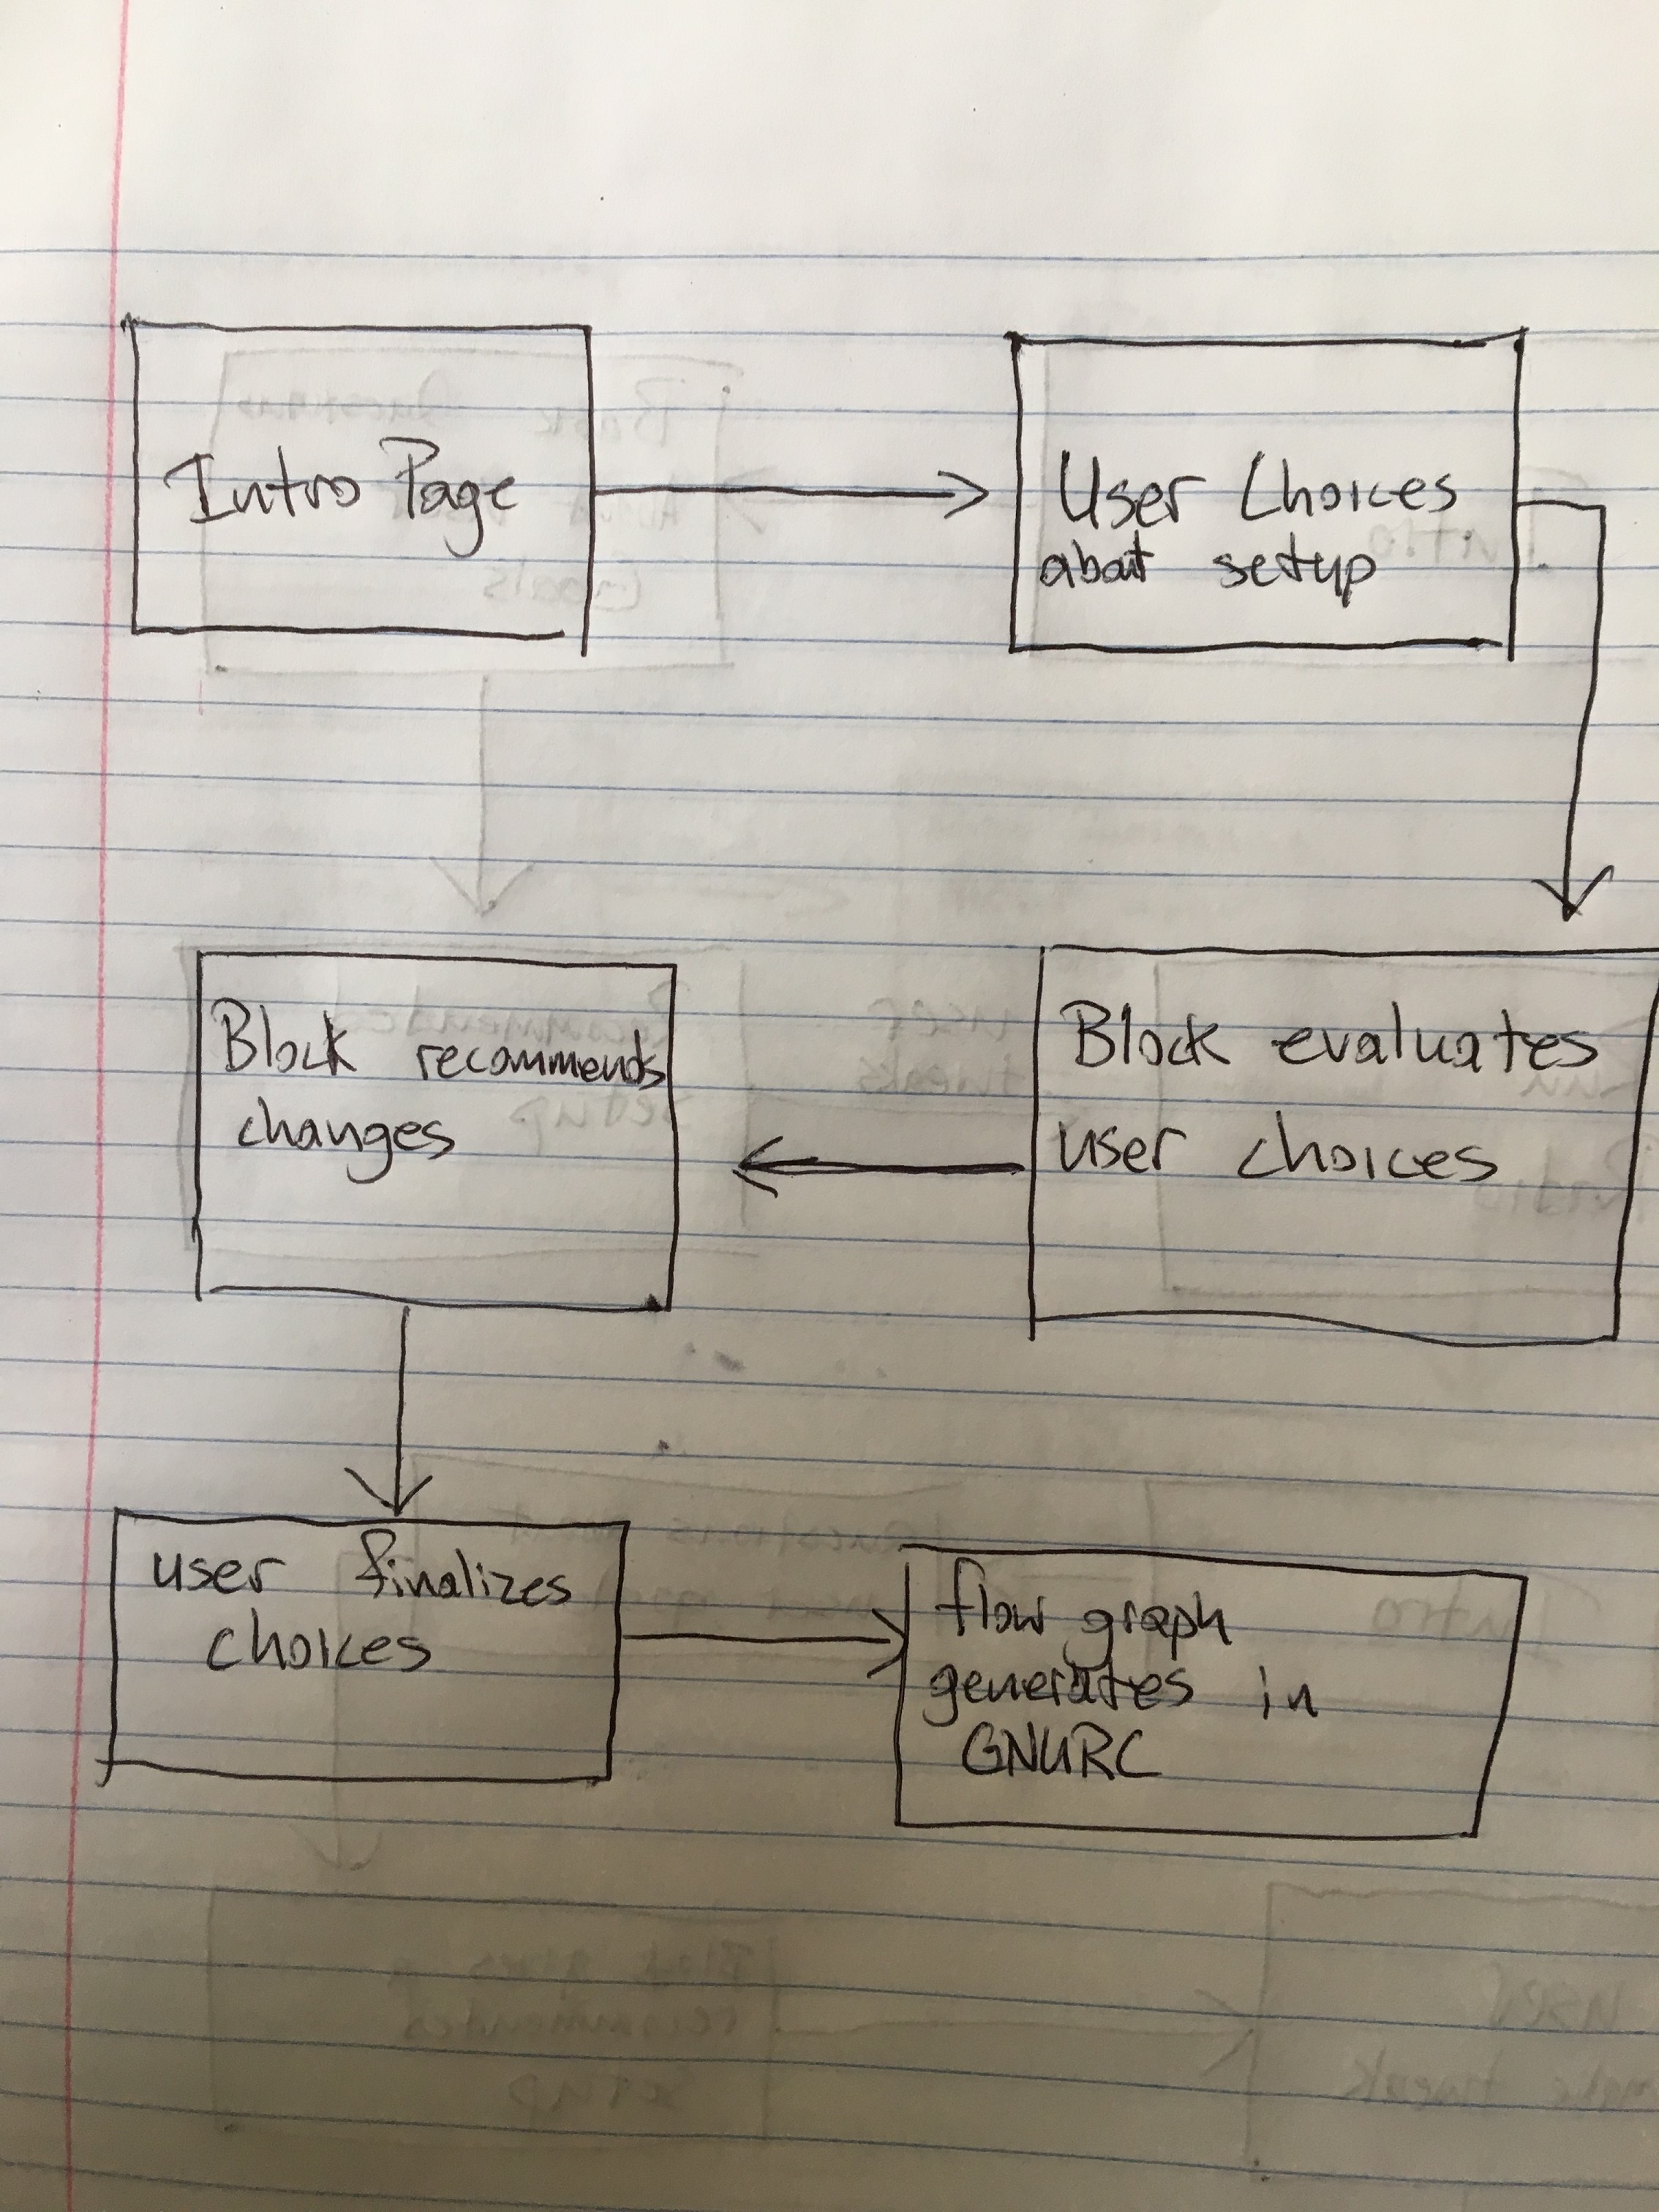 Intro Page
User Choices
about setup
Block evaluates
user choices
Block recommends
changes
user finalizes
choices
flow graph
generates in
GNURC